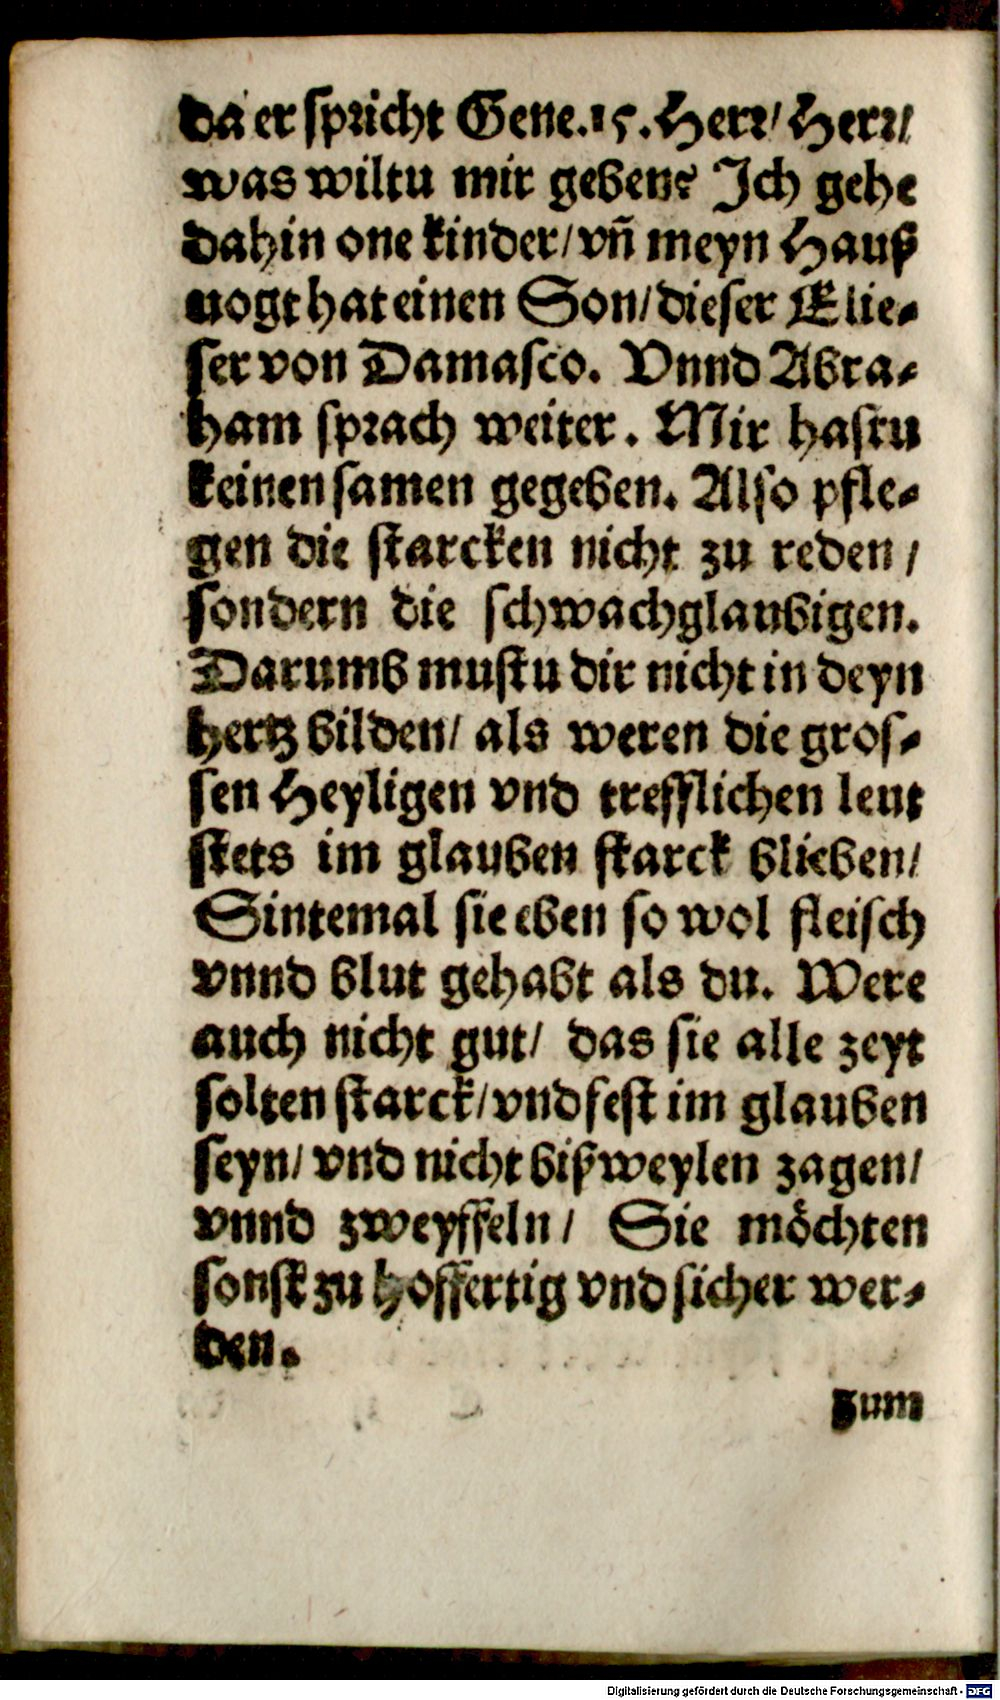 da er spricht Gene.15. Herr/ Herr/
was wiltu mir geben? Ich gehe
dahin one kinder/ vñ meyn Hauß
uogt hat einen Son/ dieser Elie-
ser von Damasco. Vnnd Abra-
ham sprach weiter. Mir hastu
keinen samen gegeben. Also pfle-
gen die starcken nicht zu reden/
sondern die schwachglaubigen.
Darumb mustu dir nicht in deyn
hertz bilden/ als weren die gros-
sen Heyligen vnd trefflichen leut
stets im glauben starck blieben/
Sintemal sie eben so wol fleisch
vnnd blut gehabt als du. Were
auch nicht gut/ das sie alle zeyt
solten starck/ vnd fest im glauben
seyn/ vnd nicht bißweylen zagen/
vnnd zweyffeln/ Sie möchten
sonst zu hoffertig vnd sicher wer-
den.
zum
Digitalisierung gefördert durch die Deutsche Forschungsgemeinschaft - DFG